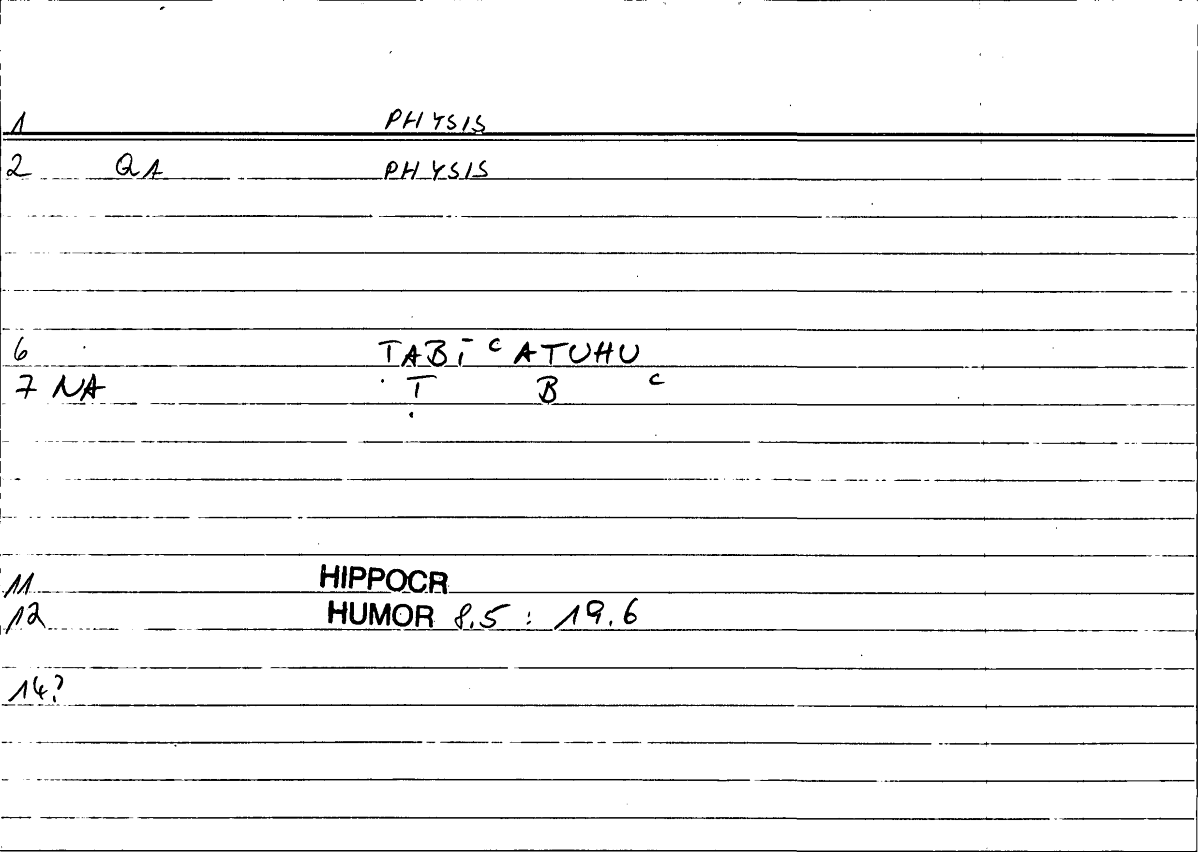 1 PHYSIS
2 QA PHYSIS
6 TABĪ ᶜATUHU
7 NA Ṭ B ᶜ
11 HIPPOCR
12 HUMOR 8.5 : 19.6
14?